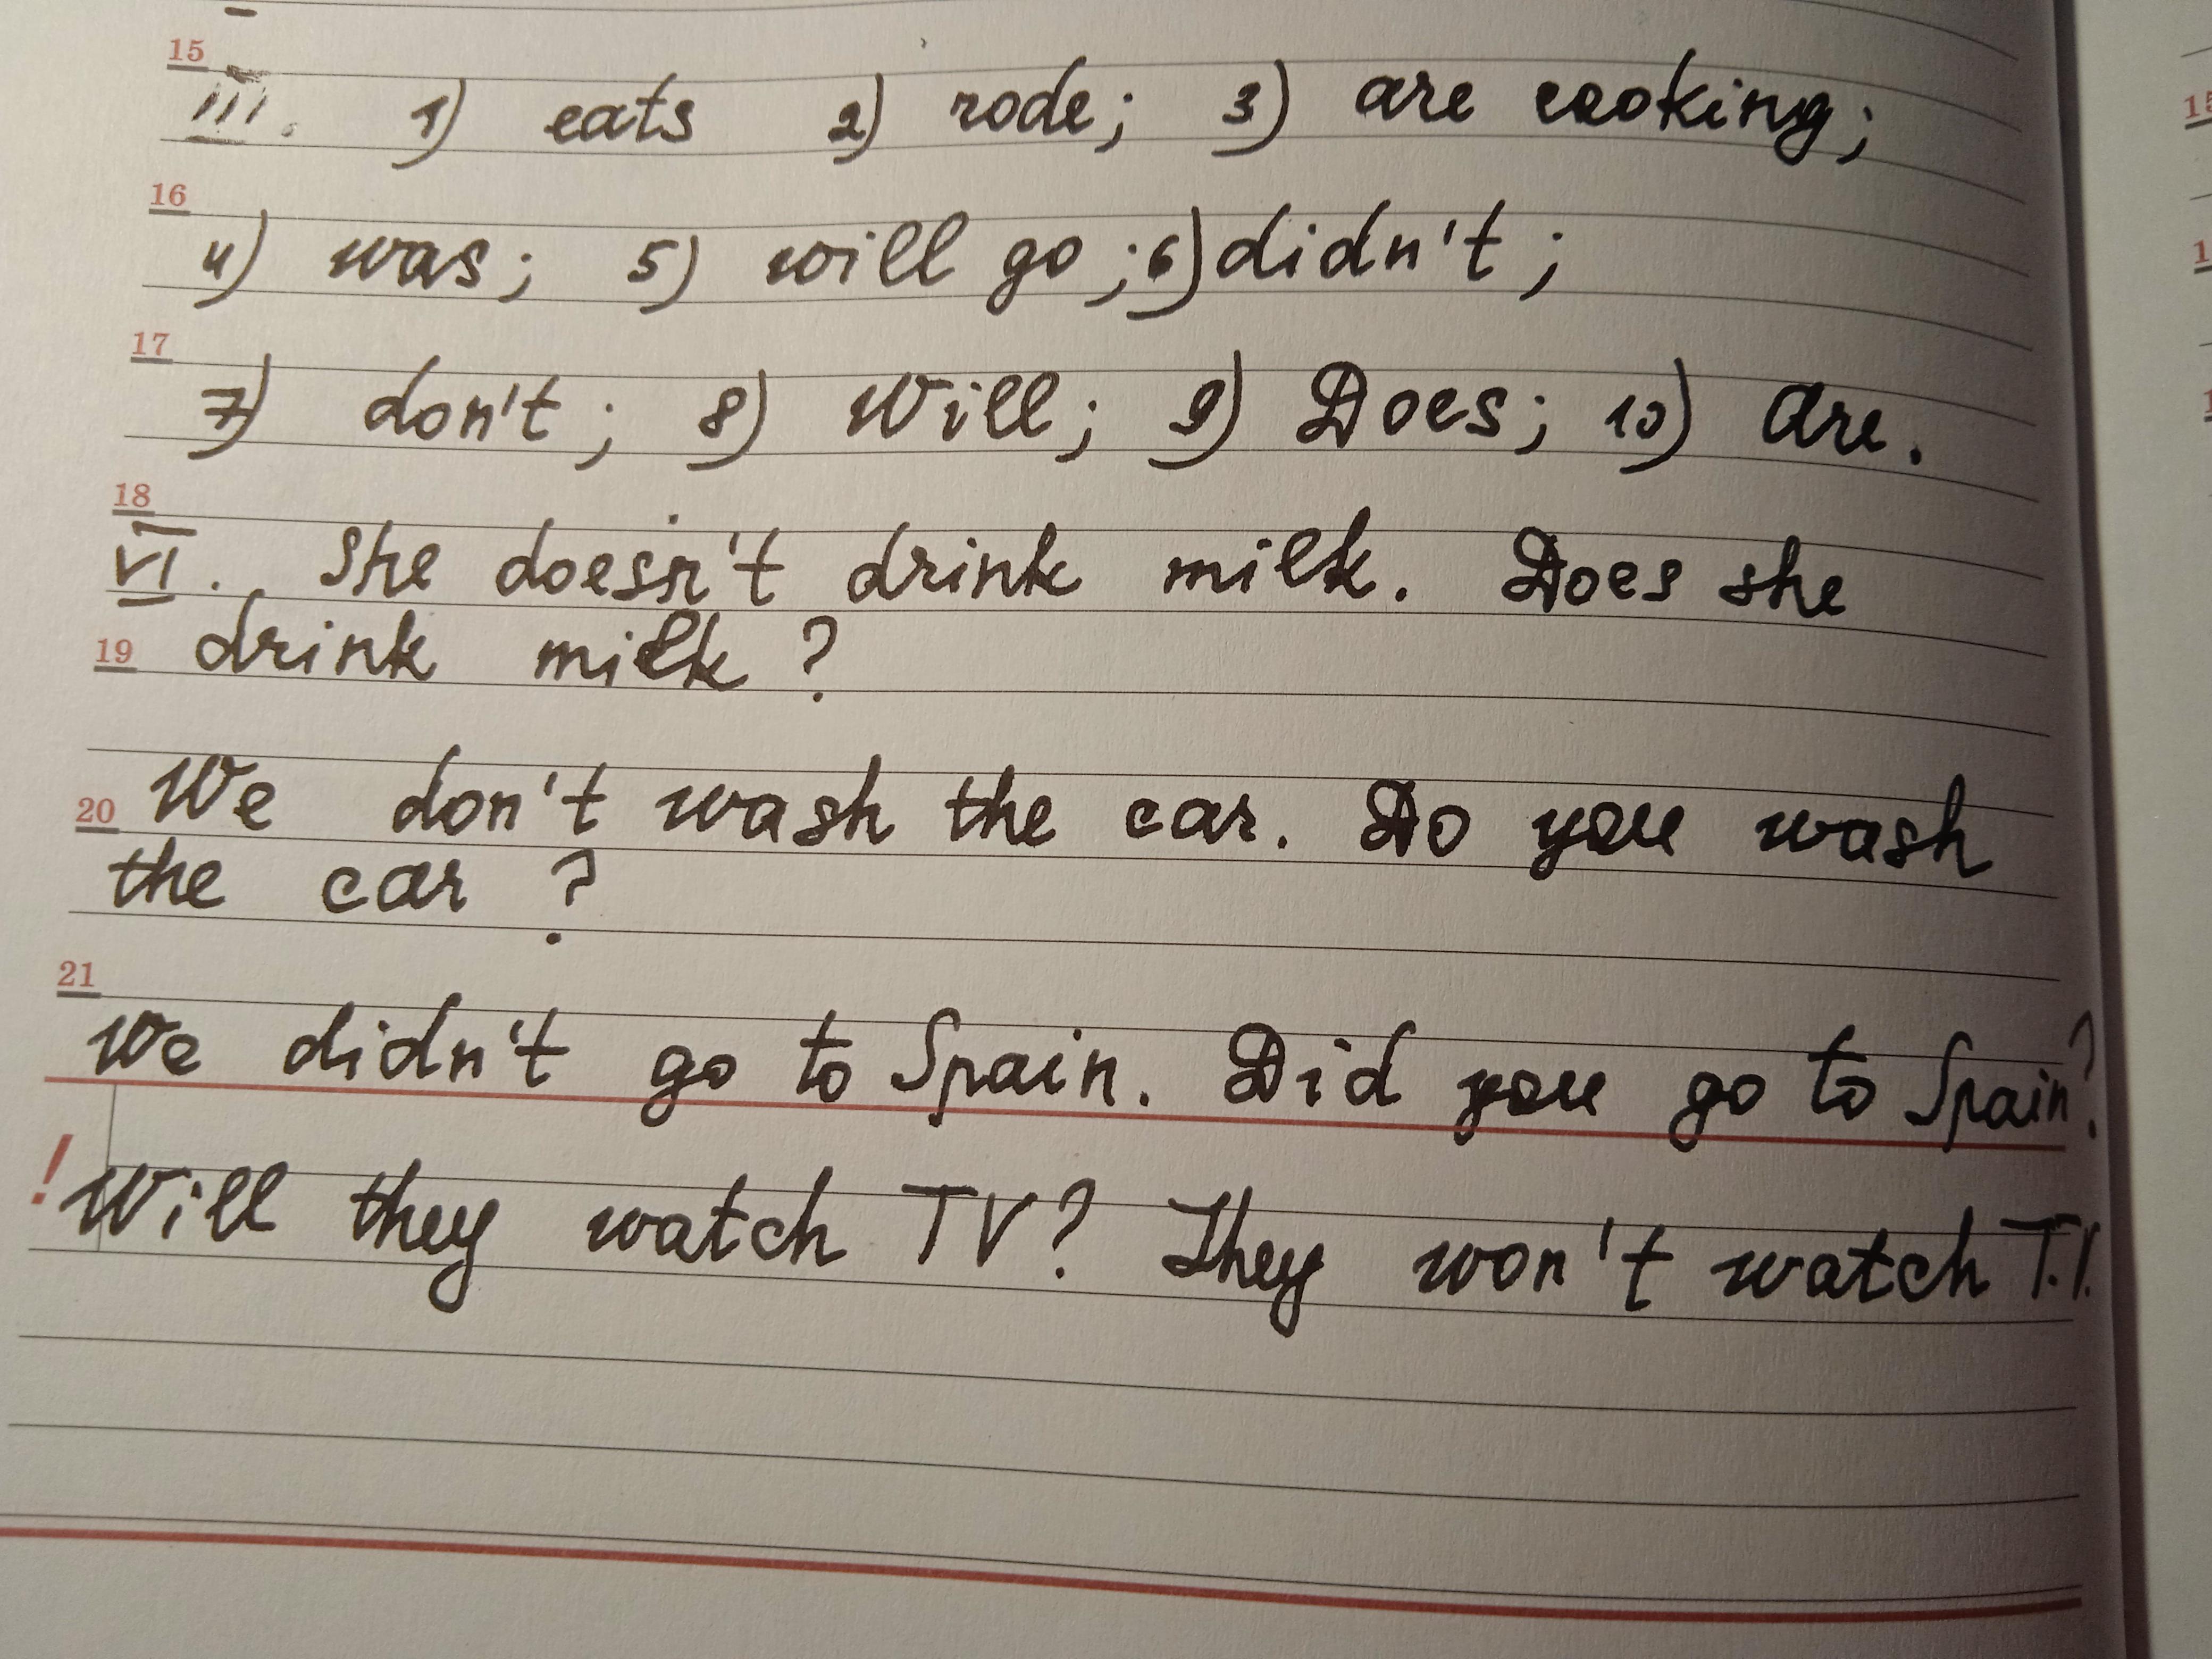 15
III. 1) eats 2) rode; 3) are cooking;
16
4) was; 5) will go; 6) didn't;
17
7) don't; 8) Will; 9) Does; 10) Are.
18
VI. She doesn't drink milk. Does she
19 drink milk?
20 We don't wash the car. Do you wash
the car?
21
We didn't go to Spain. Did you go to Spain?
! Will they watch TV? They won't watch T.V.
15